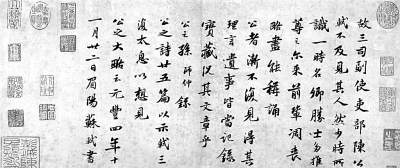 故三司副使吏部陳公
軾不及見其人然少時所
識一時名卿勝士多推
尊之尔来前輩凋喪
略盡能稱誦
公者漸不復見得其
理言遺事皆當記錄
寶藏況其文章乎
公之孫師仲錄
公之詩廿五篇以示軾三
復太息以想見
公之大略云元豐四年十
一月廿二日眉陽蘇軾書